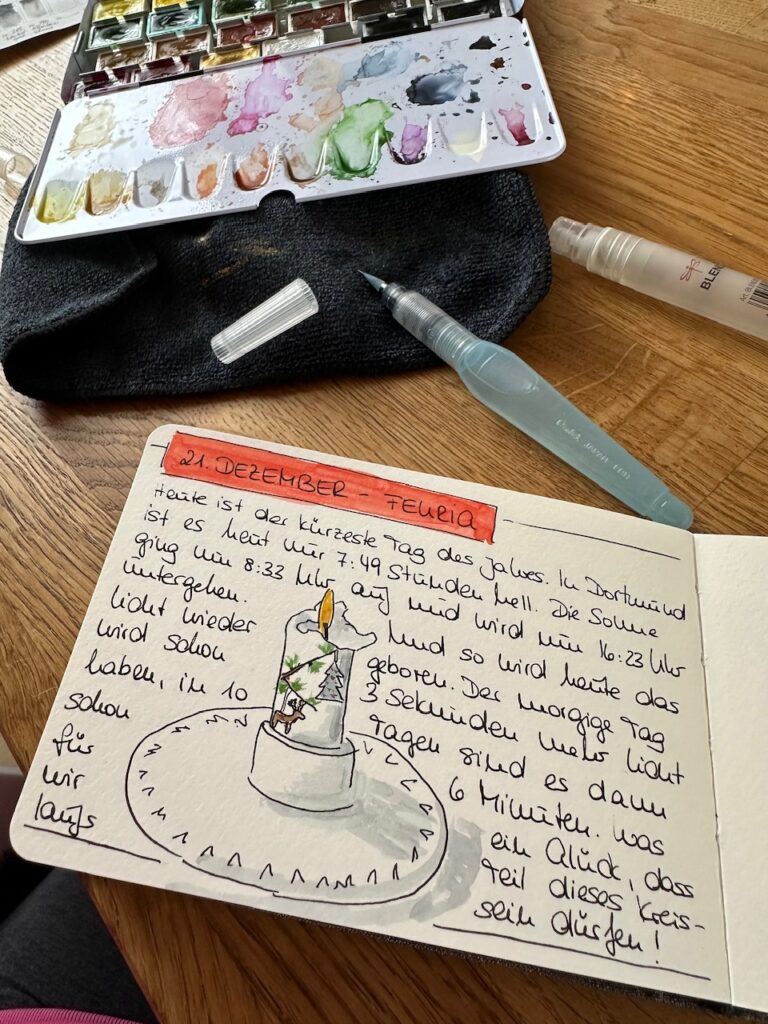 BLEN
21. DEZEMBER - FEURIA
Heute ist der kürzeste Tag des Jahres. In Dortmund
ist es heut nur 7:49 Stunden hell. Die Sonne
ging um 8:33 Uhr auf und wird um 16:23 Uhr
untergehen. Und so wird heute das
licht wieder geboren. Der morgige Tag
wird schon 3 Sekunden mehr licht
haben, in 10 Tagen sind es dann
schon 6 Minuten. Was
für ein Glück, dass
wir Teil dieses Kreis-
laufs sein dürfen!